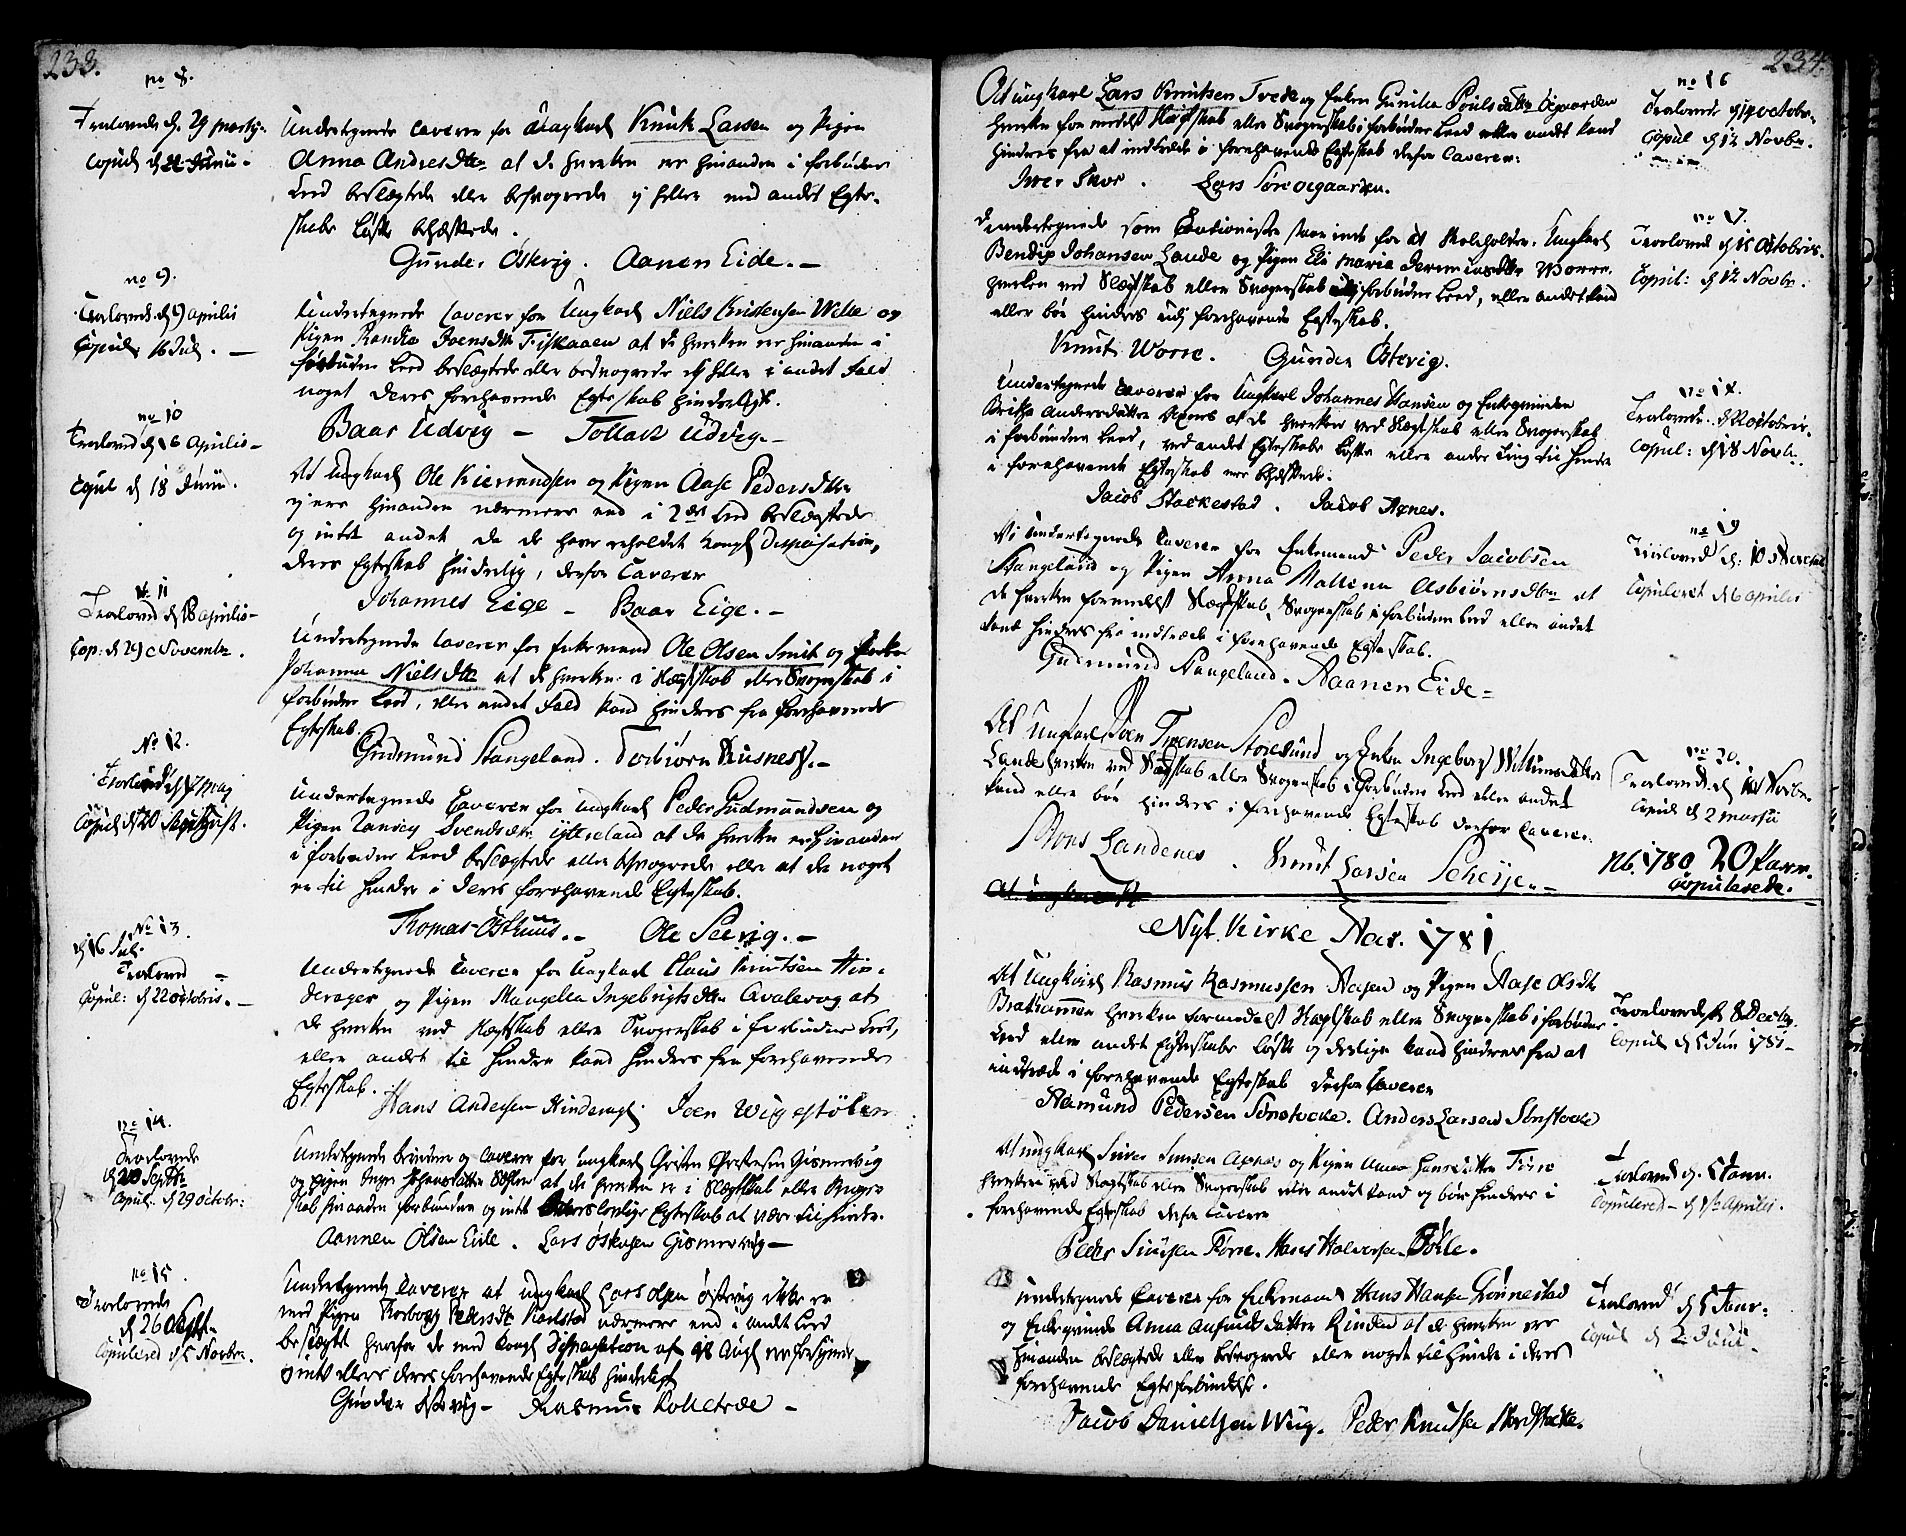 233.
no 8.
Trolovede d. 29 martij.
Copul d 22 Junii.
Undertegnede Caverer for Ungkarl Knut Larsen og Pigen
Anna Andresdtr at de hverken er hinanden i forbuden
Leed beslægtede eller besvogrede ej heller med andet Egte-
skabs Løfte behæftede.
Gunder Østevig. Aanen Eide.
no 9.
Trolovede d 9 Aprilis
Copul. 16 Jul.
Undertegnede Caverer for Ungkarl Niels Kristensen Welle og
Pigen Randia Joensdtr Fiskaaen at de hverken er hinanden i
forbuden Leed beslægtede eller besvogrede ej heller i andet fald
noget deres forehavende Egteskab hinderligt.
Baar Udvig - Tollak Udvig.
no 10
Trolovet d 16 Aprilis
Copul d 18 Junii.
At Ungkarl Ole Kierrandsen og Pigen Aase Pedersdtr
ej ere hinanden nærmere end i 2det Leed beslægtede
og intet andet da de have erholdet kongl Dispensation,
deres Egteskab hinderlig, derfor Caverer
Johannes Eige - Baar Eige.
No 11
Trolovet d 18 Aprilis
Cop: d 29 November.
Undertegnede Caverer for Enkemand Ole Olsen Smit og Enke
Johanna Nielsdtr at de hverken i Slægtskab eller Svogerskab i
forbuden Leed, eller andet fald kand hindres fra forehavende
Egteskab.
Gudmund Stangeland. Torbiørn Husnes.
No 12.
Trolovet d 7 Maj
Copul d 20 August.
Undertegnede Caverer for Ungkarl Peder Gudmundsen og
Pigen Svendsdtr Yttereland at de hverken er hinanden
i forbuden Leed beslægtede eller besvogrede eller at de noget
er til hinder i deres forehavende Egteskab.
Thomas Østhuus. - Ole Seevig.
No 13
d 16 Jul.
Trolovet
Copul: d 22 Octobris.
Undertegnede Caverer for Ungkarl Claus Knutsen Hin-
derager og Pigen Mangelia Ingebrigtsdtr Qvalevog at
de hverken ved Slægtskab eller Svogerskab i forbuden Leed,
eller andet til hinder kand hindres fra forehavende
Egteskab.
Hans Andersen Hinderagl. Joen Wigestølen
no 14.
Trolovede
d 20 Septbr
Copul. d 29 Octobr:
Undertegnede og Caverer for Ungkarl Christen Christensen Gismervig
og Pigen Inger Johansdatter at de hverken er i Slægtskab eller Svoger-
skab hinanden forbunden og intet Egteskab at være til hinder.
Aannen Olsen Eide. Lars Øskensen Gismervig
no 15.
Trolovede
d 26 Septbr.
Copulered d 5 Novbr.
Undertegnede Caverer at Ungkarl Lars Olsen Østevig ikke er
med Pigen Torborg Pedersdtr Karlstad nærmere end i andet Leed
beslægtet hvorfor de med kongl Dispensation af 18 Aug er forsynede
og intet ellers deres forehavende Egteskab hinderligt
Gunder Østevig - Rasmus Kolletvedt -
234.
no 16
Trolovede d 19 octobr.
Copul d 12 Novbr.
At Ungkarl Lars Knutsen Tvede og Enken Gunila Poulsdatter Øigaarden
hverken formedelst Slægtskab eller Svogerskab i forbuden Leed eller andet kand
hindres fra at indtræde i forehavende Egteskab derfor Caverer:
Iver Skor. Lars Lore øegaarden.
no 17.
Trolovet d 15 Octobris.
Copul: d 12 Novbr.
Undertegnede som Cautionister staar inde for at Skoleholder, Ungkarl
Bendix Johansen Lande og Pigen Eli Maria Worre.
hverken ved Slægtskab eller Svogerskab udj forbuden Leed, eller andet kand
eller bør hindres udj forehavende Egteskab.
Knut Worre. Gunder Østevig.
no 18.
Trolovede d 22 Octobris.
Copul: d 18 Novb.
Undertegnede Caverer for Ungkarl Johannes Hansen og Enkeqvinden
Britha Andersdatter Apnes at de hverken ved Slægtskab eller Svogerskab
i forbuden Leed, ved andet Egteskabs Løfte eller anden ting til hinder
i forehavende Egteskab ere behæftede.
Jacob Stackestad. Jacob Apnes.
no 19
Trolovet d: 10 Novembr
Copuleret d 6 Aprilis
Vi Undertegnede Caverer for Enkemand Peder Jacobsen
Stangeland og Pigen Anna Mallena Asbiørnsdtr at
de hverken formedelst Slægtskab, Svogerskab i forbuden Leed eller andet
kand hindres fra indtræde i forehavende Egteskab.
Gudmund Stangeland. Aanen Eide
no 20.
Trolovede. d Novbr.
Copul d 2 Martii
At Ungkarl Joen Støresund og Enken Ingeborg Willumsdatter
Lande hverken ved Slægtskab eller Svogerskab i forbuden Leed eller andet
kand eller bør hindres i forehavende Egteskab derfor Caverer.
Mons Landenes. Knut Larsen Scheisen
Nb. 1780 20 Parr
Copulerede.
Nyt Kirke Aar. 1781
At Ungkarl Rasmus Rasmussen Aasen og Pigen Aase Olsdtr
Brathammer hverken formedelst Slægtskab eller Svogerskab i forbuden
Leed eller andet Egteskabs Løfte og deslige kand hindres fra at
indtræde i forehavende Egteskab derfor Caverer
Aamund Pedersen Sørstocke. Anders Larsen Sørstocke
Trolovede d 8 Decbr.
Copul d 5 Jun 1781
At Ungkarl Siver Simsen Apnes og Pigen Anna Hansdatter Førre
hverken ved Slægtskab eller Svogerskab eller andet kand og bør hindres i
forehavende Egteskab derfor Caverer
Peder Førre. Hans Halversen Bøkle.
Trolovede d. 5 Janr.
Copulered - d 1ste Aprilis.
Undertegnede Caverer for Enkemand Hans Hansen Grønnestad
og Enkeqvinde Anna Anfindsdatter Rinden at de hverken ere
hinanden beslægtede eller besvogrede eller noget til hinder i deres
forehavende Egteforbindelse.
Jacob Danielsen Wiig. Peder Knutsen Nordstocke.
Trolovet d 5 Janr.
Copul d 2 Junii.